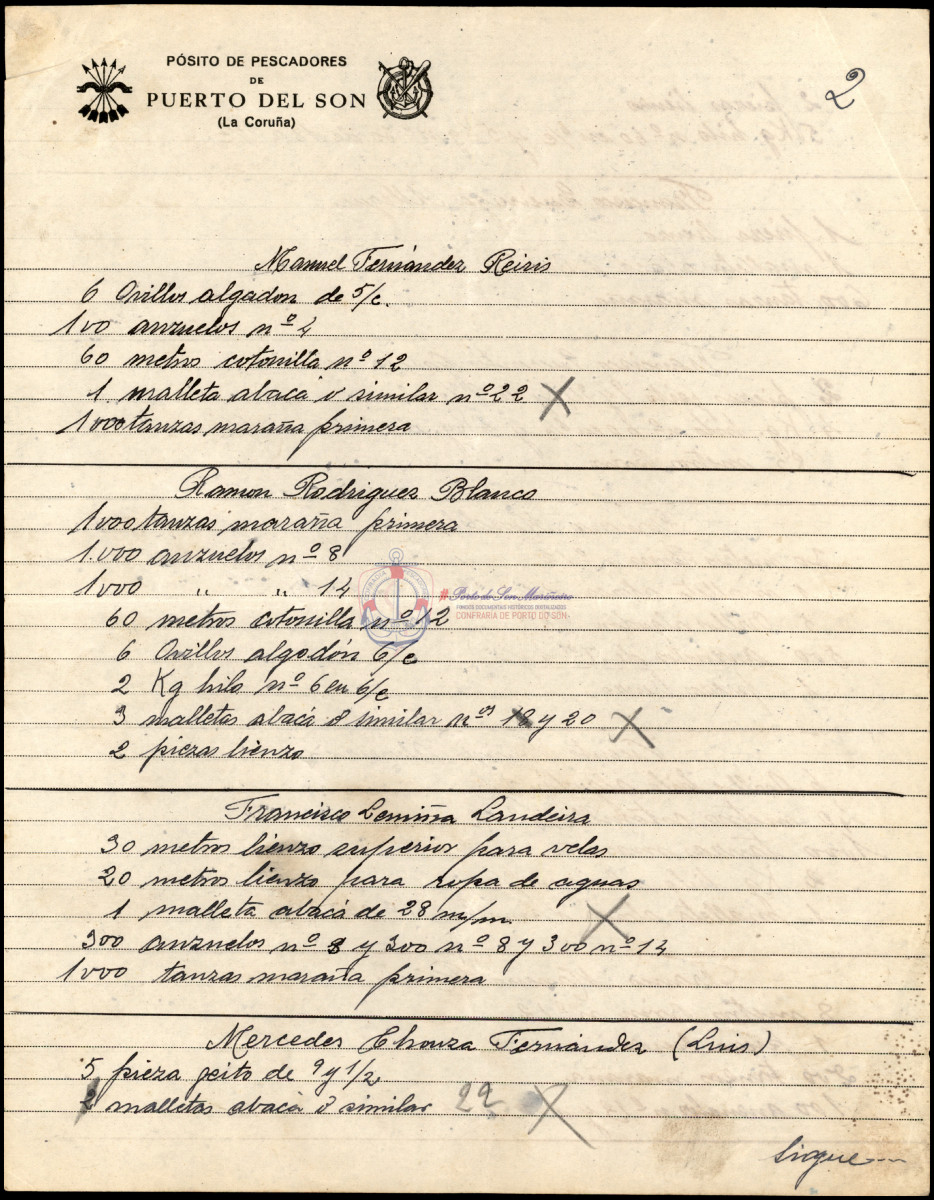 PÓSITO DE PESCADORES
DE
PUERTO DEL SON
(La Coruña)
2
Manuel Fernández Reiris
6 Ovillos algadon de 5/c.
100 anzuelos nº 4
60 metros cotonilla nº 12
1 malleta abacá ó similar nº 22 X
1000 tanzas maraña primera
Ramon Rodriguez Blanco
1000 tanzas maraña primera
1.000 anzuelos nº 8
1000 " " 14
60 metros cotonilla nº 12
6 Ovillos algodón 6/c
2 Kg hilo nº 6 en 6/c
3 malletas abacá ó similar nos 18 y 20 X
2 piezas lienzo
#Porto do Son Mariñeiro
FONDOS DOCUMENTAIS HISTÓRICOS DIXITALIZADOS
CONFRARÍA DE PORTO DO SON
Francisco Lemiña Landeira
30 metros lienzo superior para velas
20 metros lienzo para ropa de aguas
1 malleta abacá de 28 m/m. X
300 anzuelos nº 3 y 300 nº 8 y 300 nº 14
1000 tanzas maraña primera
Mercedes Chouza Fernández (Luis)
5 pieza xeito de 9 y 1/2
2 malletas abacá ó similar 22 X
Sigue